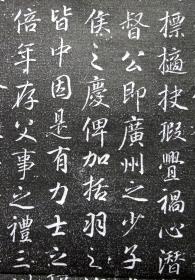 摽擿抉瑕舋禍心潛
督公即廣州之少子
侯之慶俾加括羽之
皆中因是有力士之
倍年存父事之禮三